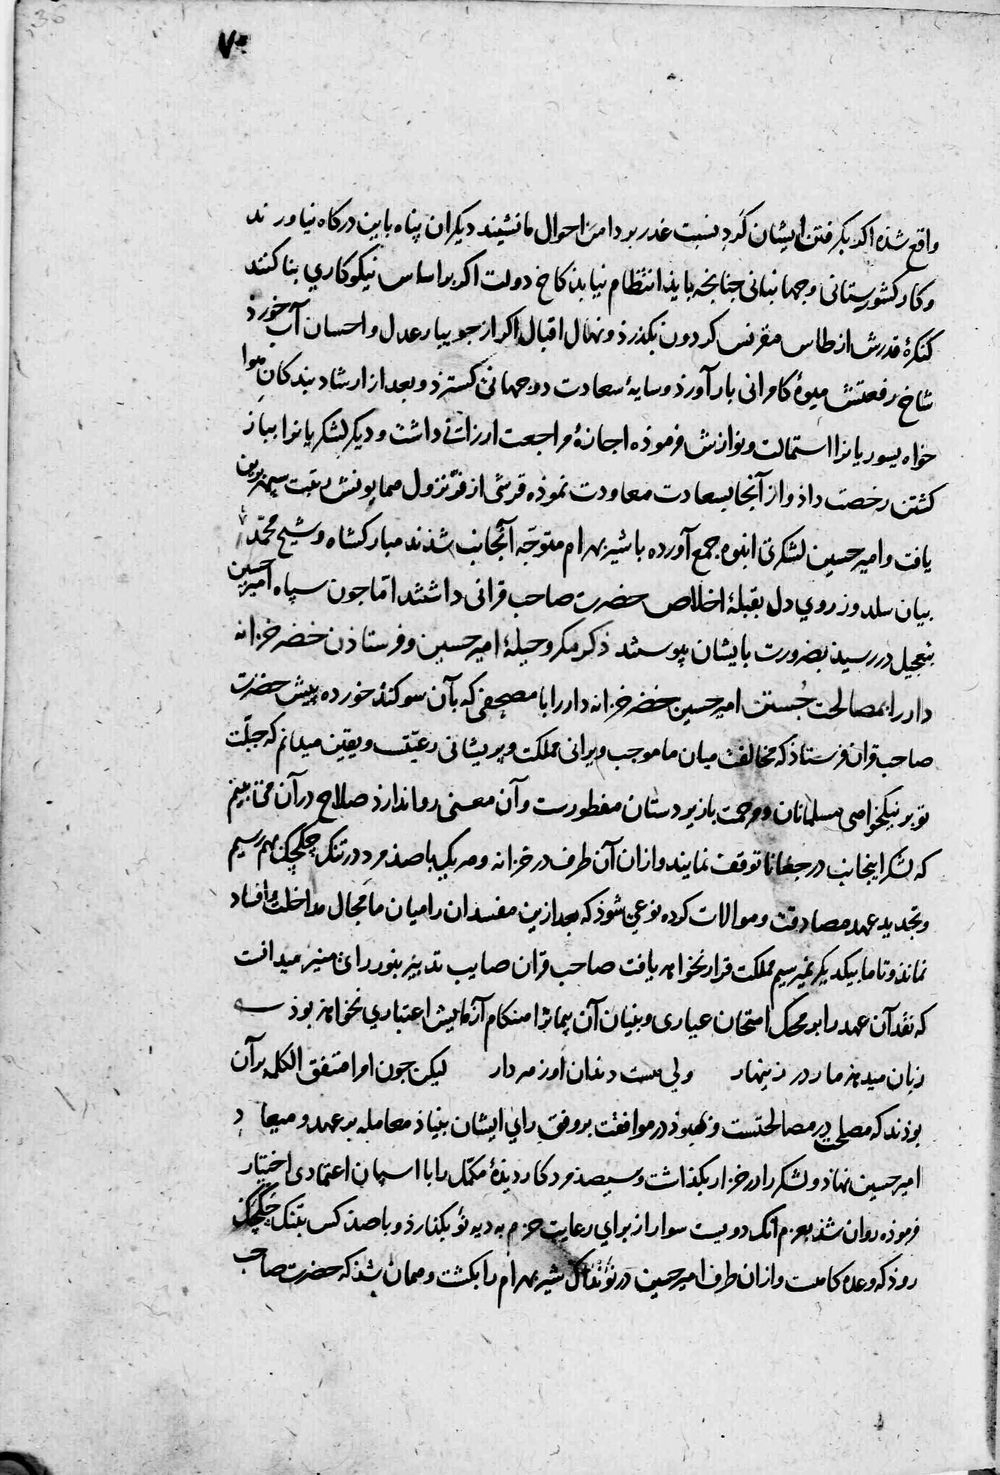 36
۷۰
واقع شده اکر بکرفتن ایشان کرد نسبت غدر بر دامن احوال ما نشیند دیکران پناه باین درکاه نیاورند
و کار کشورستانی و جهانبانی چنانچه باید انتظام نیابد کاخ دولت اکر بر اساس نیکوکاري بنا کنند
کنکرهٔ قدرش از طاس مقرنس کردون بکذرذ و نهال اقبال اکر از جویبار عدل و احسان آب خورذ
شاخ رفعتش میوهٔ کامرانی بار آورذ و سایهٔ سعادت دوجهانی کسترذ و بعد از ارشاد بندکان هوا
خواه یسوریانرا استمالت و نوازش فرموذه اجازهٔ مراجعت ارزانی داشت و دیکر لشکریانرا بباز
کشتن رخصت داذ و از آنجا بسعادت معاودت نموذه قرشی از فرّ نزول همایونش رتبت سپهر برین
یافت و امیر حسین لشکری انبوه جمع آورده با شیر بهرام متوجّه آنجانب شذند مبارکشاه و شیخ محمّد
بیان سلدوز روي دل بقبلهٔ اخلاص حضرت صاحب قرانی داشتند امّا جون سپاه امیر حسین
بتعجیل در رسیذ بضرورت بایشان پیوستند ذکر مکر و حیلهٔ امیر حسین و فرستاذن خضر خزانه
دار را بمصالحت جُستن امیر حسین خضر خزانه دار را با مصحفی که بآن سوکند خورده پیش حضرت
صاحب قران فرستاذ که مخالفت میان ما موجب ویرانی مملکت و پریشانی رعیّت و یقین میدانم که جبلّت
تو بر نیکخواهی مسلمانان و مرحمت بازیردستان مفطورست و آن معنی روا ندارذ صلاح در آن می بینم
که لشکر اینجانب در جغانا توقف نمایند و ازان آن طرف در خزانه و هر یک با صذ مرد در تنک چکچک بهم رسیم
و تجدید عهد مصادقت و موالات کرده نوعی شوذ که بعد ازین مفسدان را میان ما مجال مداخلت و افساد
نماند و تا ما بیکدیکر نمیرسیم مملکت قرار نخواهد یافت صاحب قران صایب تدبیر بنور راي منیر میدانست
که نقد آن عهد را بر محک امتحان عیاری و بنیان آن پیمانرا هنکام آزمایش اعتباري نخواهد بوذ
زبان میدهد مار در زینهار ولی هست دندان او زهردار لیکن جون امرا متفق الکلمه بر آن
بوذند که مصلحت در مصالحتست و بهبوذ در موافقت بر وفق راي ایشان بنیاذ معامله بر عهد و میعاد
امیر حسین نهاذ و لشکر را در خزار بکذاشت و سیصد مرد کار دیذهٔ مکمّل را با اسپان اعتمادی اختیار
فرموذه روان شذ بعزم آنک دویست سوار از براي رعایت حزم به دیه نو بکذارذ و با صد کس بتنک چکچک
روذ که وعده کاهست و ازان طرف امیر حسین در شیر بهرام را بکشت و همان شذ که حضرت صاحب